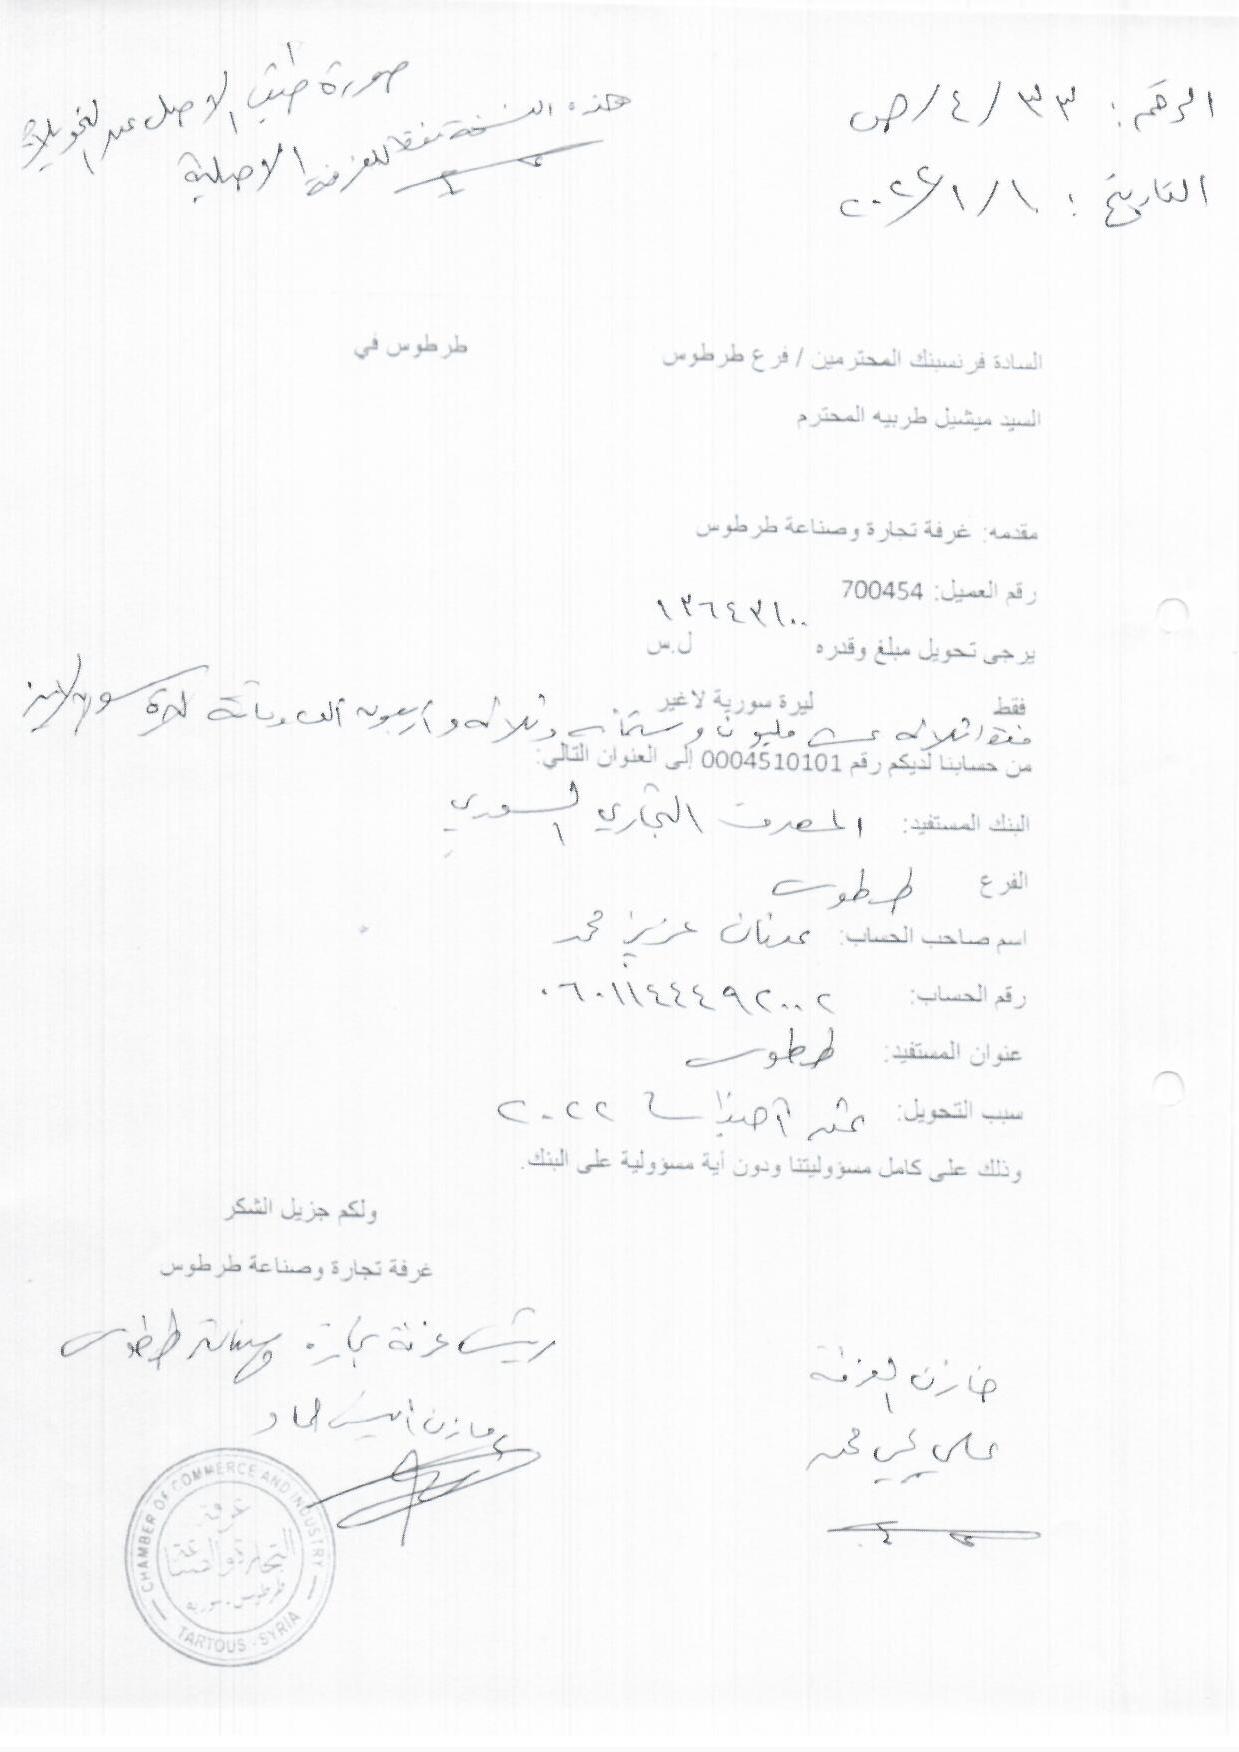 الرقم: ٣٣/٤/ص
التاريخ: ١٠/١/٢٠٢٢
صورة طبق الاصل عن التحويلات
هذه النسخة فقط للغرفة الاصلية
طرطوس في
السادة فرنسبنك المحترمين / فرع طرطوس
السيد ميشيل طربيه المحترم
مقدمه: غرفة تجارة وصناعة طرطوس
رقم العميل: 700454
يرجى تحويل مبلغ وقدره ١٣٦٤٣١٠٠ ل.س
فقط ليرة سورية لاغير
فقط ثلاثة عشر مليون وستمائة وثلاثة واربعون الف ومائة ليرة سورية لاغير
من حسابنا لديكم رقم 0004510101 إلى العنوان التالي:
البنك المستفيد: المصرف التجاري السوري
الفرع طرطوس
اسم صاحب الحساب: عدنان عزيز محمد
رقم الحساب: ٠٦٠١١٤٤٤٩٢٠٠٢
عنوان المستفيد: طرطوس
سبب التحويل: ٢٠٢٢
وذلك على كامل مسؤوليتنا ودون أية مسؤولية على البنك.
ولكم جزيل الشكر
غرفة تجارة وصناعة طرطوس
رئيس غرفة تجارة وصناعة طرطوس
مازن حماد
خازن الغرفة
علي يحيى محمد
CHAMBER OF COMMERCE AND INDUSTRY
غرفة
التجارة والصناعة
طرطوس - سورية
TARTOUS - SYRIA